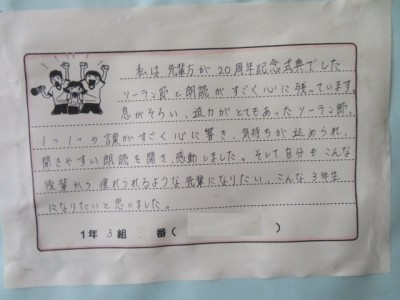 私は先輩方が20周年記念式典でした
ソーラン節と朗読がすごく心に残っています。
息がそろい、迫力がとてもあったソーラン節、
1つ1つの言葉がすごく心に響き、気持ちが込められ、
聞きやすい朗読を聞き、感動しました。そして自分もこんな
後輩から憧れられるような先輩になりたい、こんな3年生
になりたいと思いました。
1年 3組 番( )